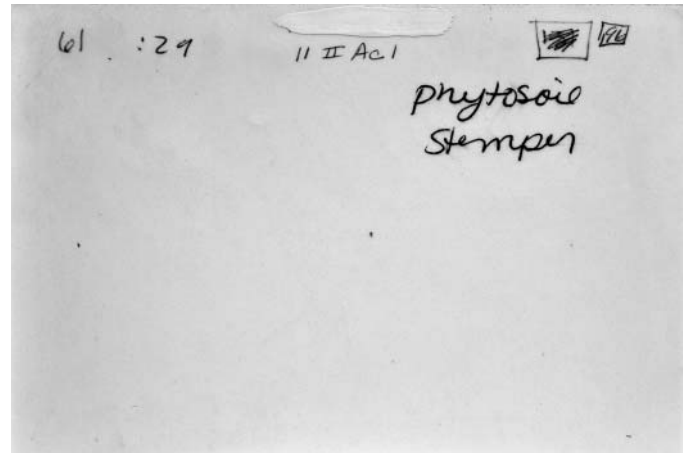 61 :29 11 II Ac1
phytosoie
Stemper